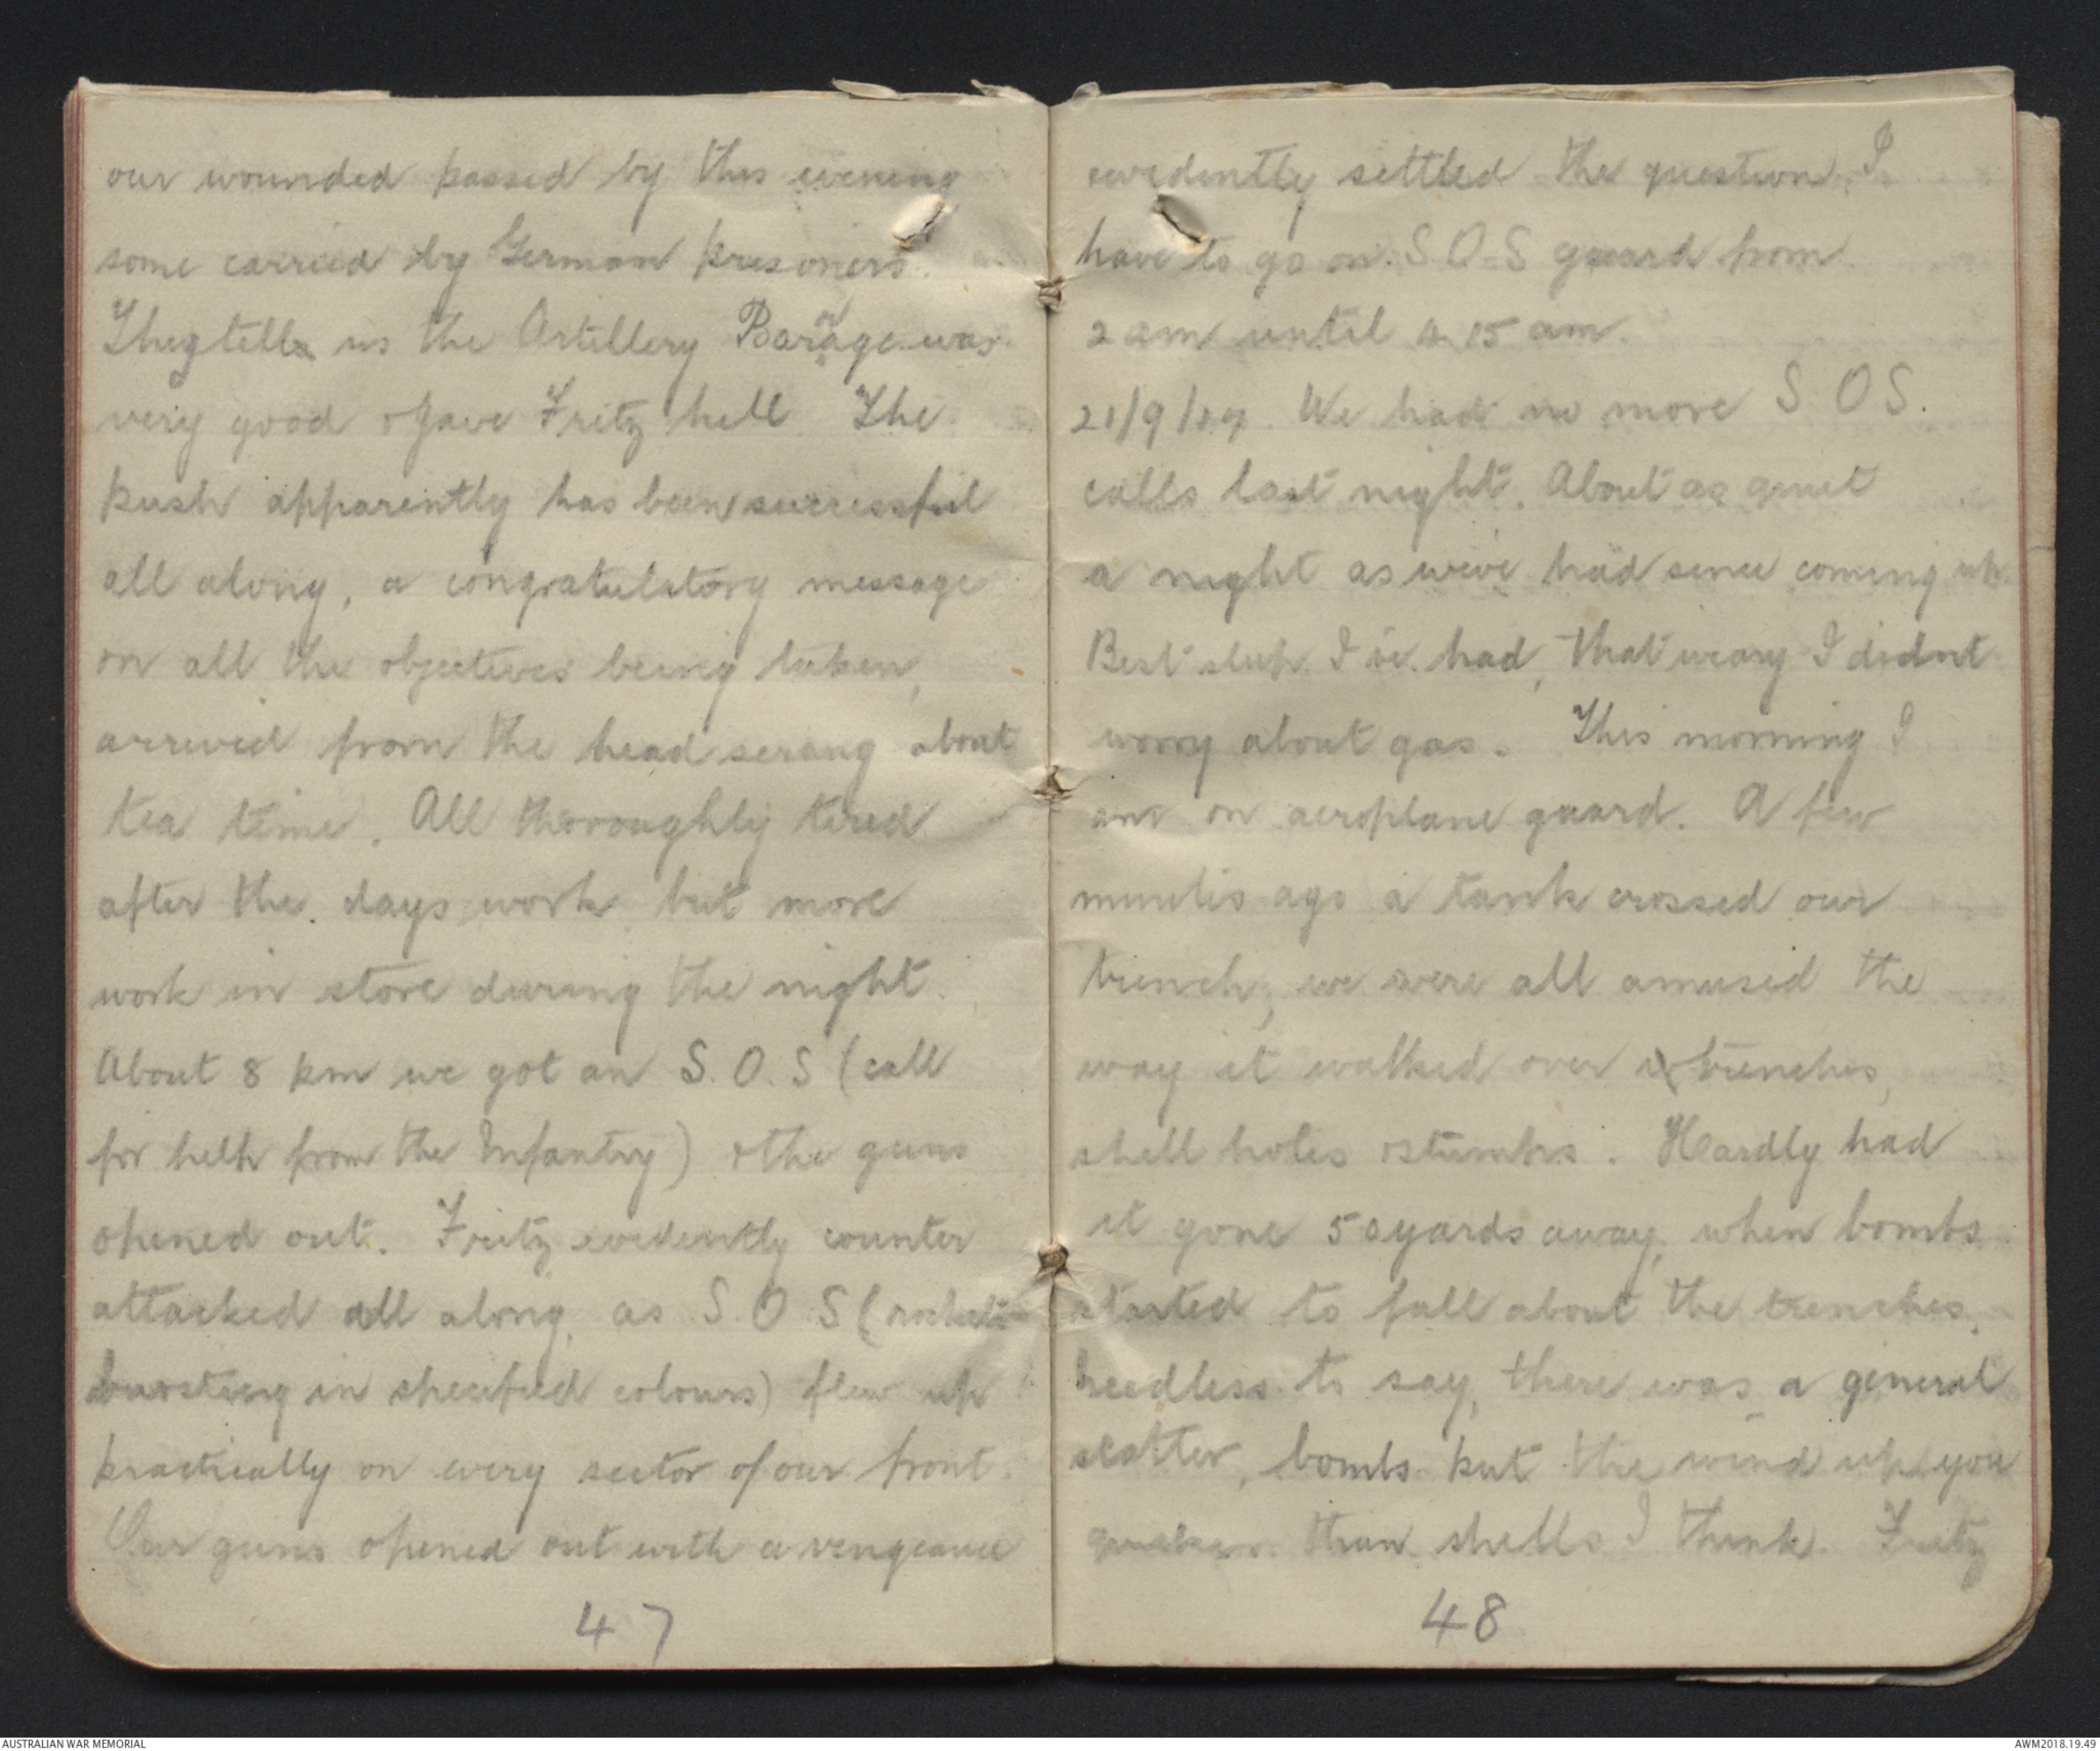 our wounded passed by this evening
some carried by German prisoners.
They tell us the Artillery Barrage was
very good & gave Fritz hell. The
push apparently has been successful
all along, a congratulatory message
on all the objectives being taken,
arrived from the head serang about
tea time. All thoroughly tired
after the days work but more
work in store during the night.
About 8 pm we got an S.O.S (call
for help from the Infantry) & the guns
opened out. Fritz evidently counter
attacked all along, as S O S (rockets
bursting in specified colours) flew up
practically on every sector of our front.
Our guns opened out with a vengeance
47
evidently settled the question. I
have to go on S O S guard from
2 am until 15 am.
21/9/17. We had no more S O S.
calls last night. About as quiet
a night as weve had since coming up.
Best sleep I've had, that weary I didnt
worry about gas. This morning I
am on aeroplane guard. A few
minutes ago a tank crossed our
trench, we were all amused the
way it walked over trenches,
shell holes & stumps. Hardly had
it gone 50 yards away, when bombs
started to fall about the trenches,
needless to say, there was a general
scatter, bombs put the wind up you
quicker than shells I think. Fritz
48
AUSTRALIAN WAR MEMORIAL
AWM2018.19.49